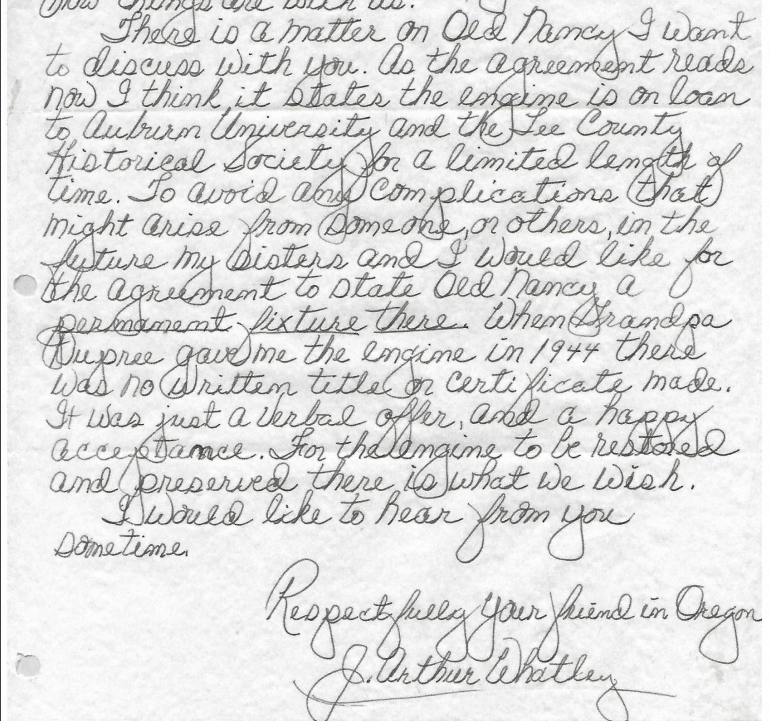 how things are with us.
There is a matter on Old Nancy I want
to discuss with you. As the agreement reads
now I think it states the engine is on loan
to Auburn University and the Lee County
Historical Society for a limited length of
time. To avoid any complications that
might arise from someone, or others, in the
future my sisters and I would like for
the agreement to state Old Nancy a
permanent fixture there. When Grandpa
Dupree gave me the engine in 1944 there
was no written title or certificate made.
It was just a verbal offer, and a happy
acceptance. For the engine to be restored
and preserved there is what we wish.
I would like to hear from you
sometime.
Respectfully your friend in Oregon
J. Arthur Whatley